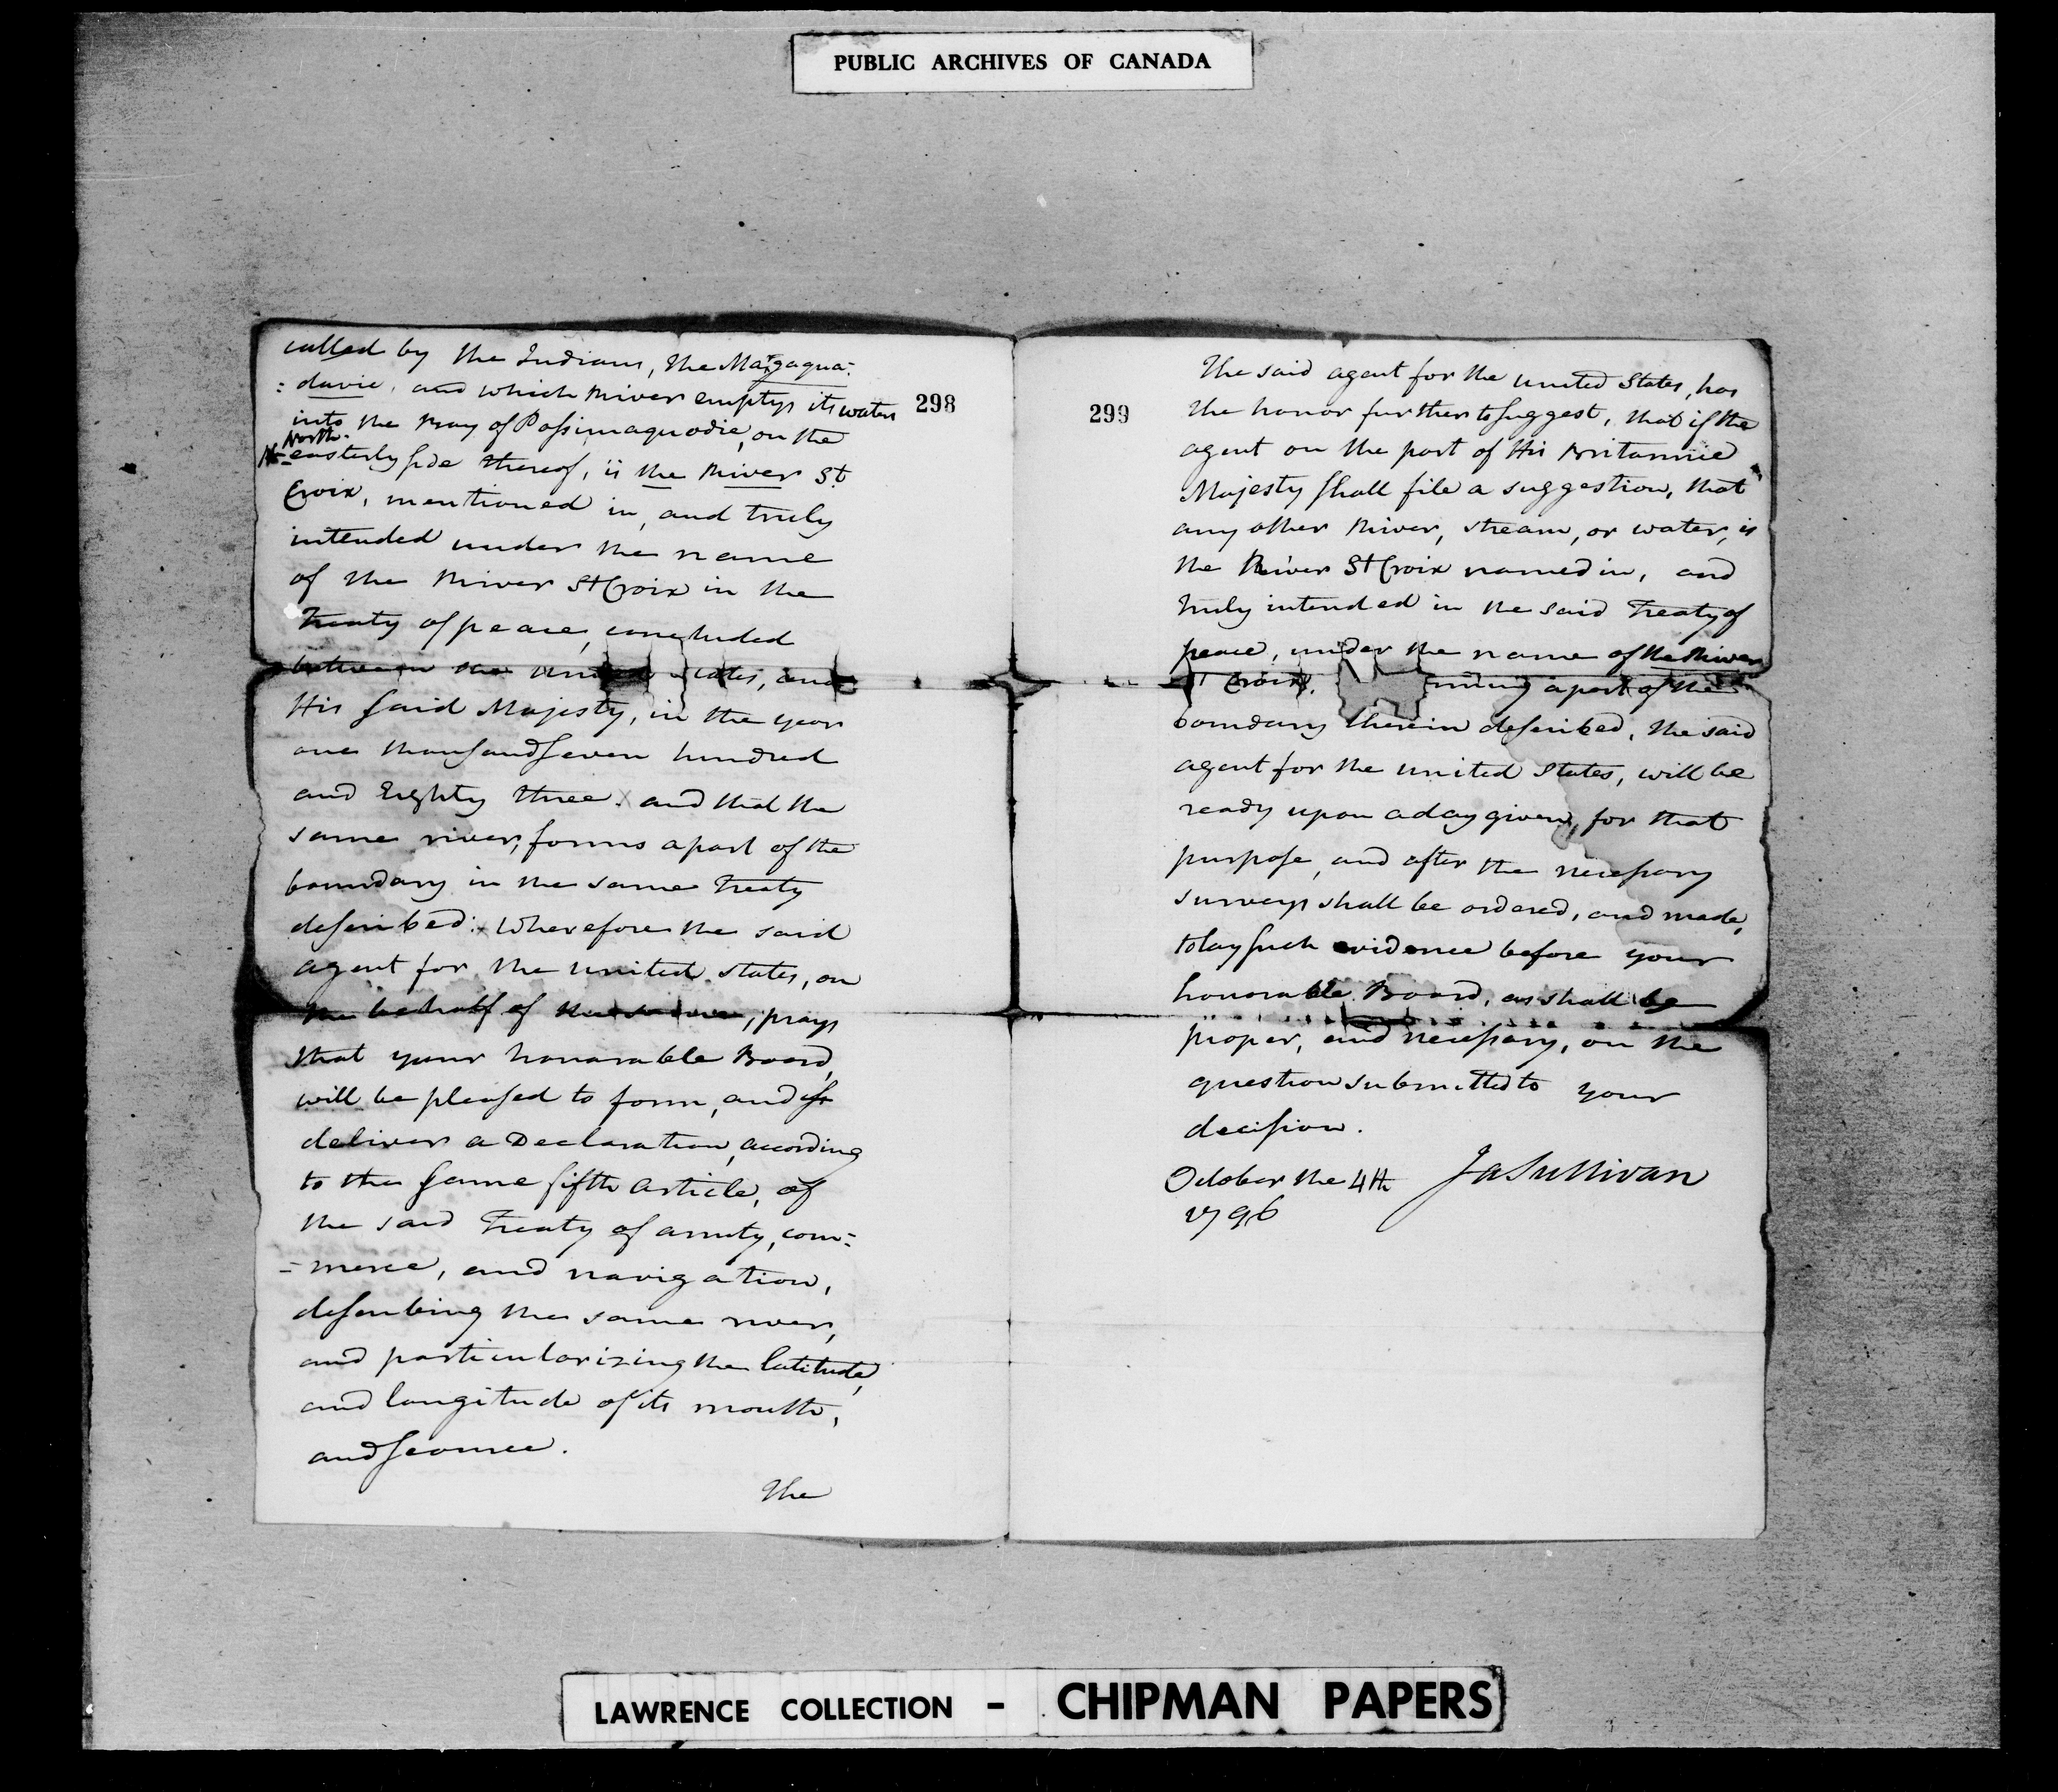 PUBLIC ARCHIVES OF CANADA
298
called by the Indians, the Maggaqua=
=davie, and which River emptys its waters
into the Bay of Passimaquodie, on the
North
=easterly side thereof, is the River St.
Croix, mentioned in, and truly
intended under the name
of the River St Croix in the
Treaty of peace, concluded
between the United States, and
His said Majesty, in the year
one thousand seven hundred
and Eighty three. x and that the
same river, forms a part of the
boundary in the same Treaty
described: x Wherefore the said
agent for the United States, on
the behalf of the same, prays
that your honorable Board,
will be pleased to form, and
deliver a Declaration, according
to the same fifth article, of
the said Treaty of amity, com=
=merce, and navigation,
describing the same river,
and particularizing the latitude,
and longitude of its mouth,
and source.
The
299
The said agent for the United States, has
the honor further to suggest, that if the
agent on the part of His Britannic
Majesty shall file a suggestion, that
any other River, stream, or water, is
the River St Croix named in, and
truly intended in the said Treaty of
peace, under the name of the River
St Croix, ming a part of the
boundary therein described, the said
agent for the United States, will be
ready upon a day given, for that
purpose, and after the necessary
surveys shall be ordered, and made,
to lay such evidence before your
honorable Board, as shall be
proper, and necessary, on the
question submitted to your
decision.
October the 4th Ja Sullivan
1796
LAWRENCE COLLECTION - CHIPMAN PAPERS